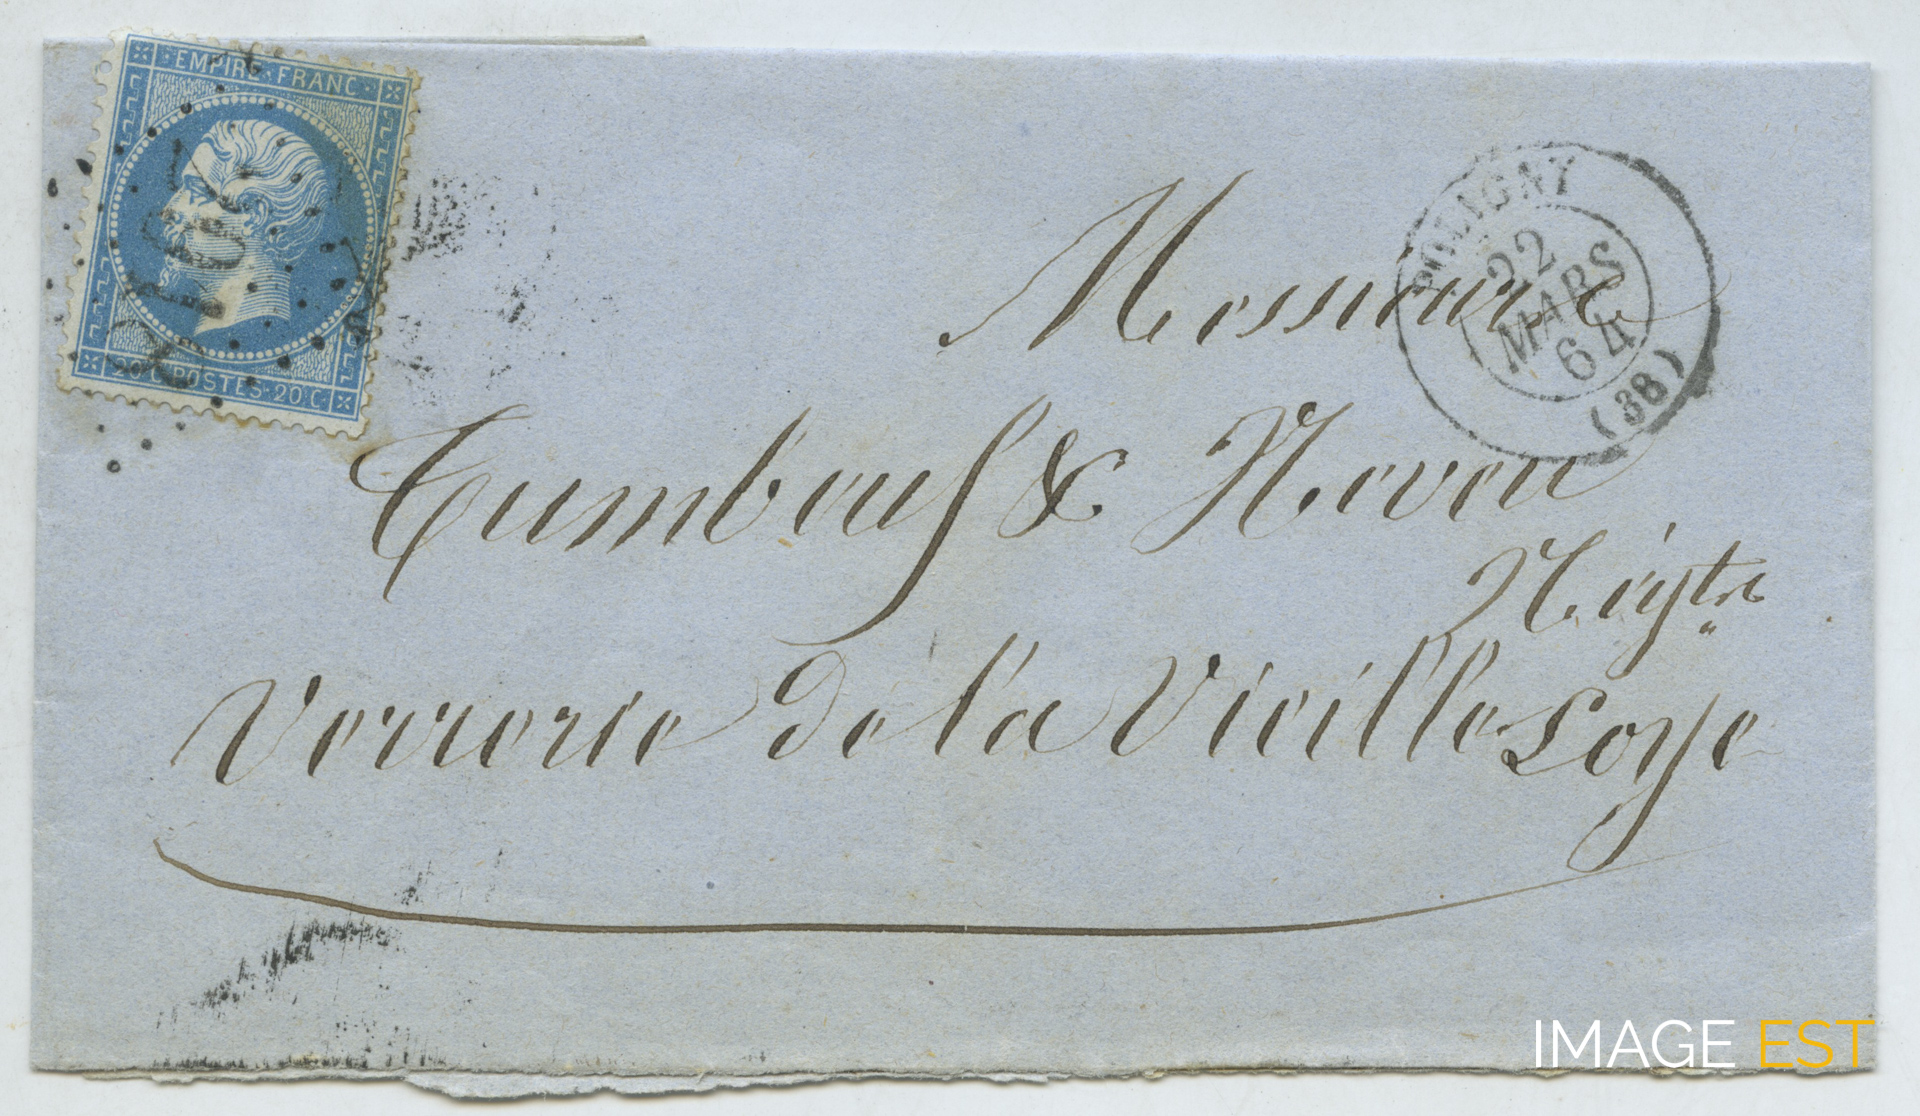 EMPIRE FRANC
20 C POSTES 20 C
POLIGNY
22
MARS
64
(38)
Messieurs
Tumbeuf & Neveu
Négts
Verrerie de la Vieille Loye
IMAGE EST